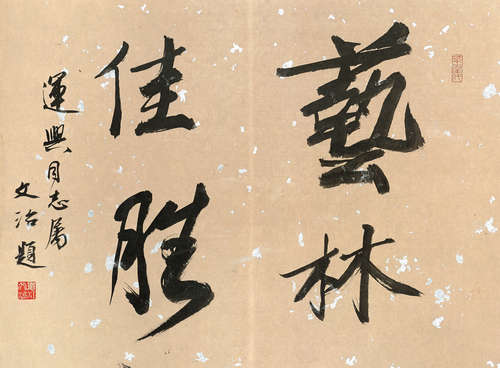 藝林
佳勝
運興同志属
文治題